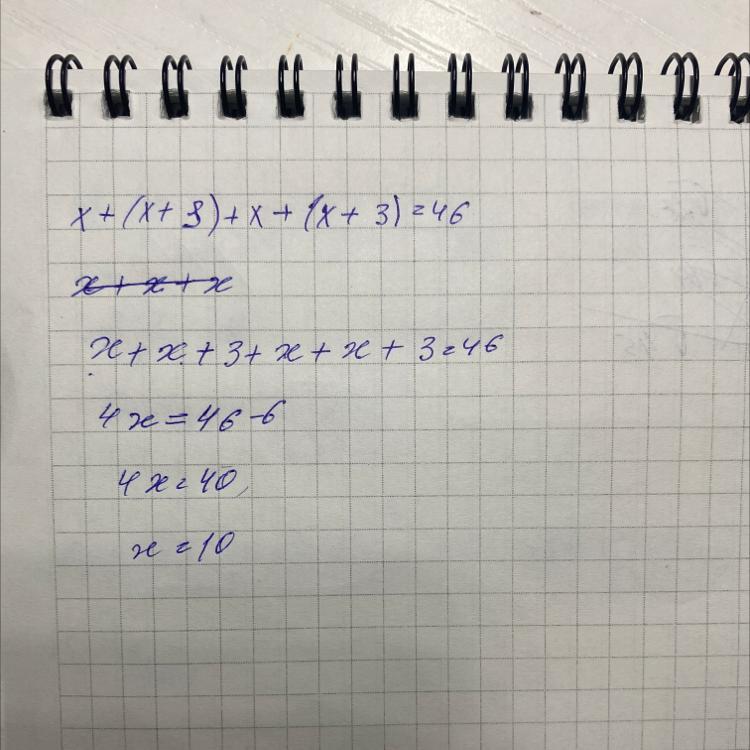 x+(x+3)+x+(x+3)=46
x+x+x
x+x+3+x+x+3=46
4x=46-6
4x=40
x=10